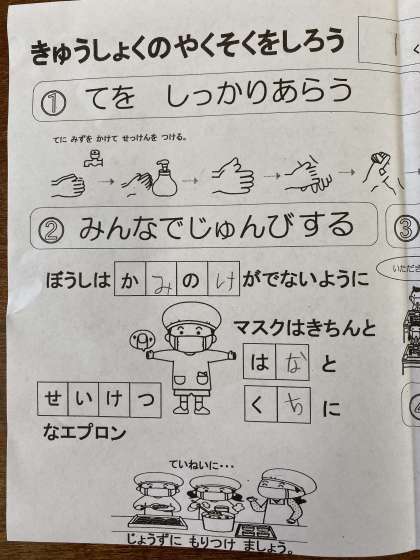 きゅうしょくのやくそくをしろう
1 く
① てを しっかりあらう
てに みずを かけて せっけんを つける。
② みんなでじゅんびする
③
ぼうしは かみの け がでないように
いただき
マスクはきちんと
はな と
くち に
せいけつ
なエプロン
ていねいに・・・
じょうずに もりつけ ましょう。